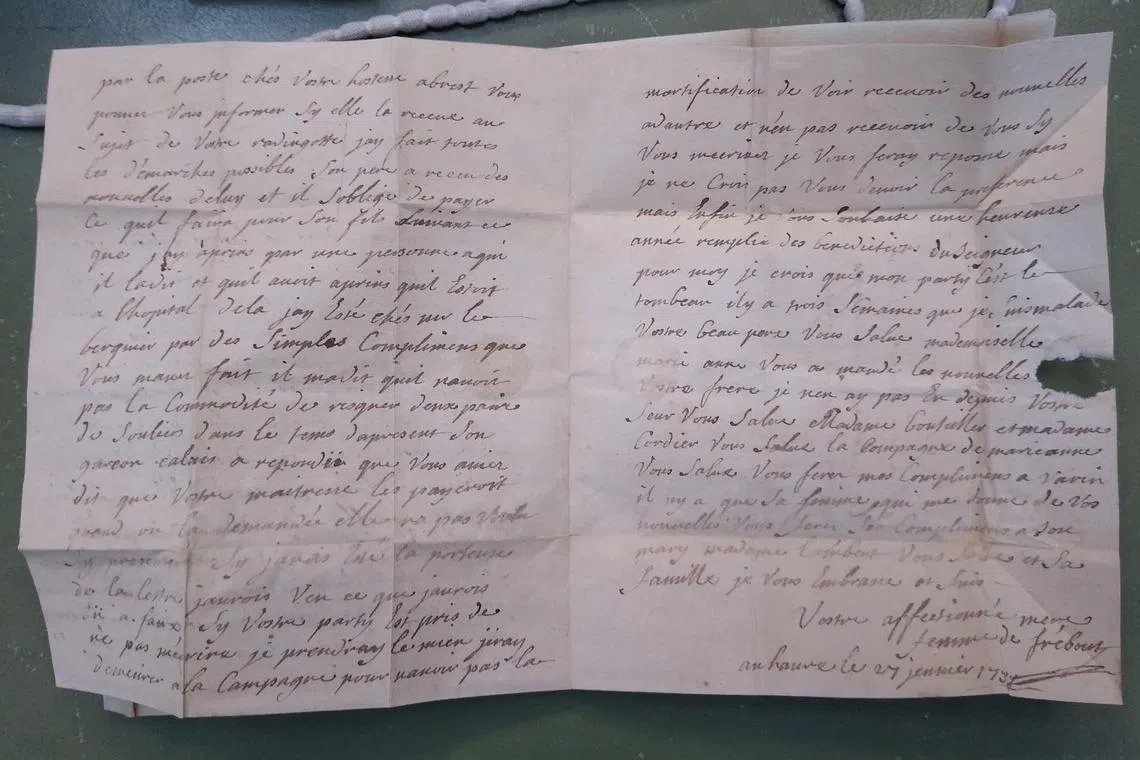 par la poste chés Vostre hostesse abrest Vous
pouvez Vous informer Sy elle la receue au
Sujet de Vostre radingotte jay fait toutes
les démarches possibles Son pere a receu des
nouvelles deluy et il Soblige de payer
Ce quil faira pour Son fils Suivant ce
que jay apris par une personne aqui
il ladit et quil avoit apris quil Estoit
a lhopital dela jay Esté chés mr le
berquier par des Simples Complimens que
Vous mavez fait il madit quil navoit
pas la Commodité de risquer deux paire
de Souliers dans le tems dapresent Son
garcon calais a repondü que Vous aviez
dit que Vostre maitresse les payeroit
quand on la demandée elle na pas Voulu
Sy presenter Sy javais Eté la porteuse
de la lettre jaurois Veu ce que jaurois
dü a faire Sy Vostre party Est pris de
ne pas mécrire je prendray le mien jiray
demeurer a la Campagne pour navoir pas la
mortification de Voir recevoir des nouvelles
adautre et nén pas recevoir de Vous Sy
Vous mecrivez je Vous feray reponse mais
je ne Crois pas Vous devoir la preference
mais Enfin je Vous Souhaise une heureuse
année remplie des benedictions du Seigneur
pour moy je crois que mon party Cést le
tombeau il y a trois Semaines que je Suis malade
Vostre beau pere Vous Salue mademoiselle
marie anne Vous a mandé les nouvelles
Vostre frere je nen ay pas Eu depuis Vostre
Seur Vous Salue Madame boutiller et madame
Cordier Vous Salue la Compagne de marie anne
Vous Salue Vous ferez mes Complimens a Varin
il ny a que Sa femme qui me donne de Vos
nouvelles Vous ferez Ses Complimens a Son
mary madame lambert Vous Salue et Sa
famille je Vous Embrasse et Suis
Vostre affectionné mere
femme de frébourg
au havre le 27 jenvier